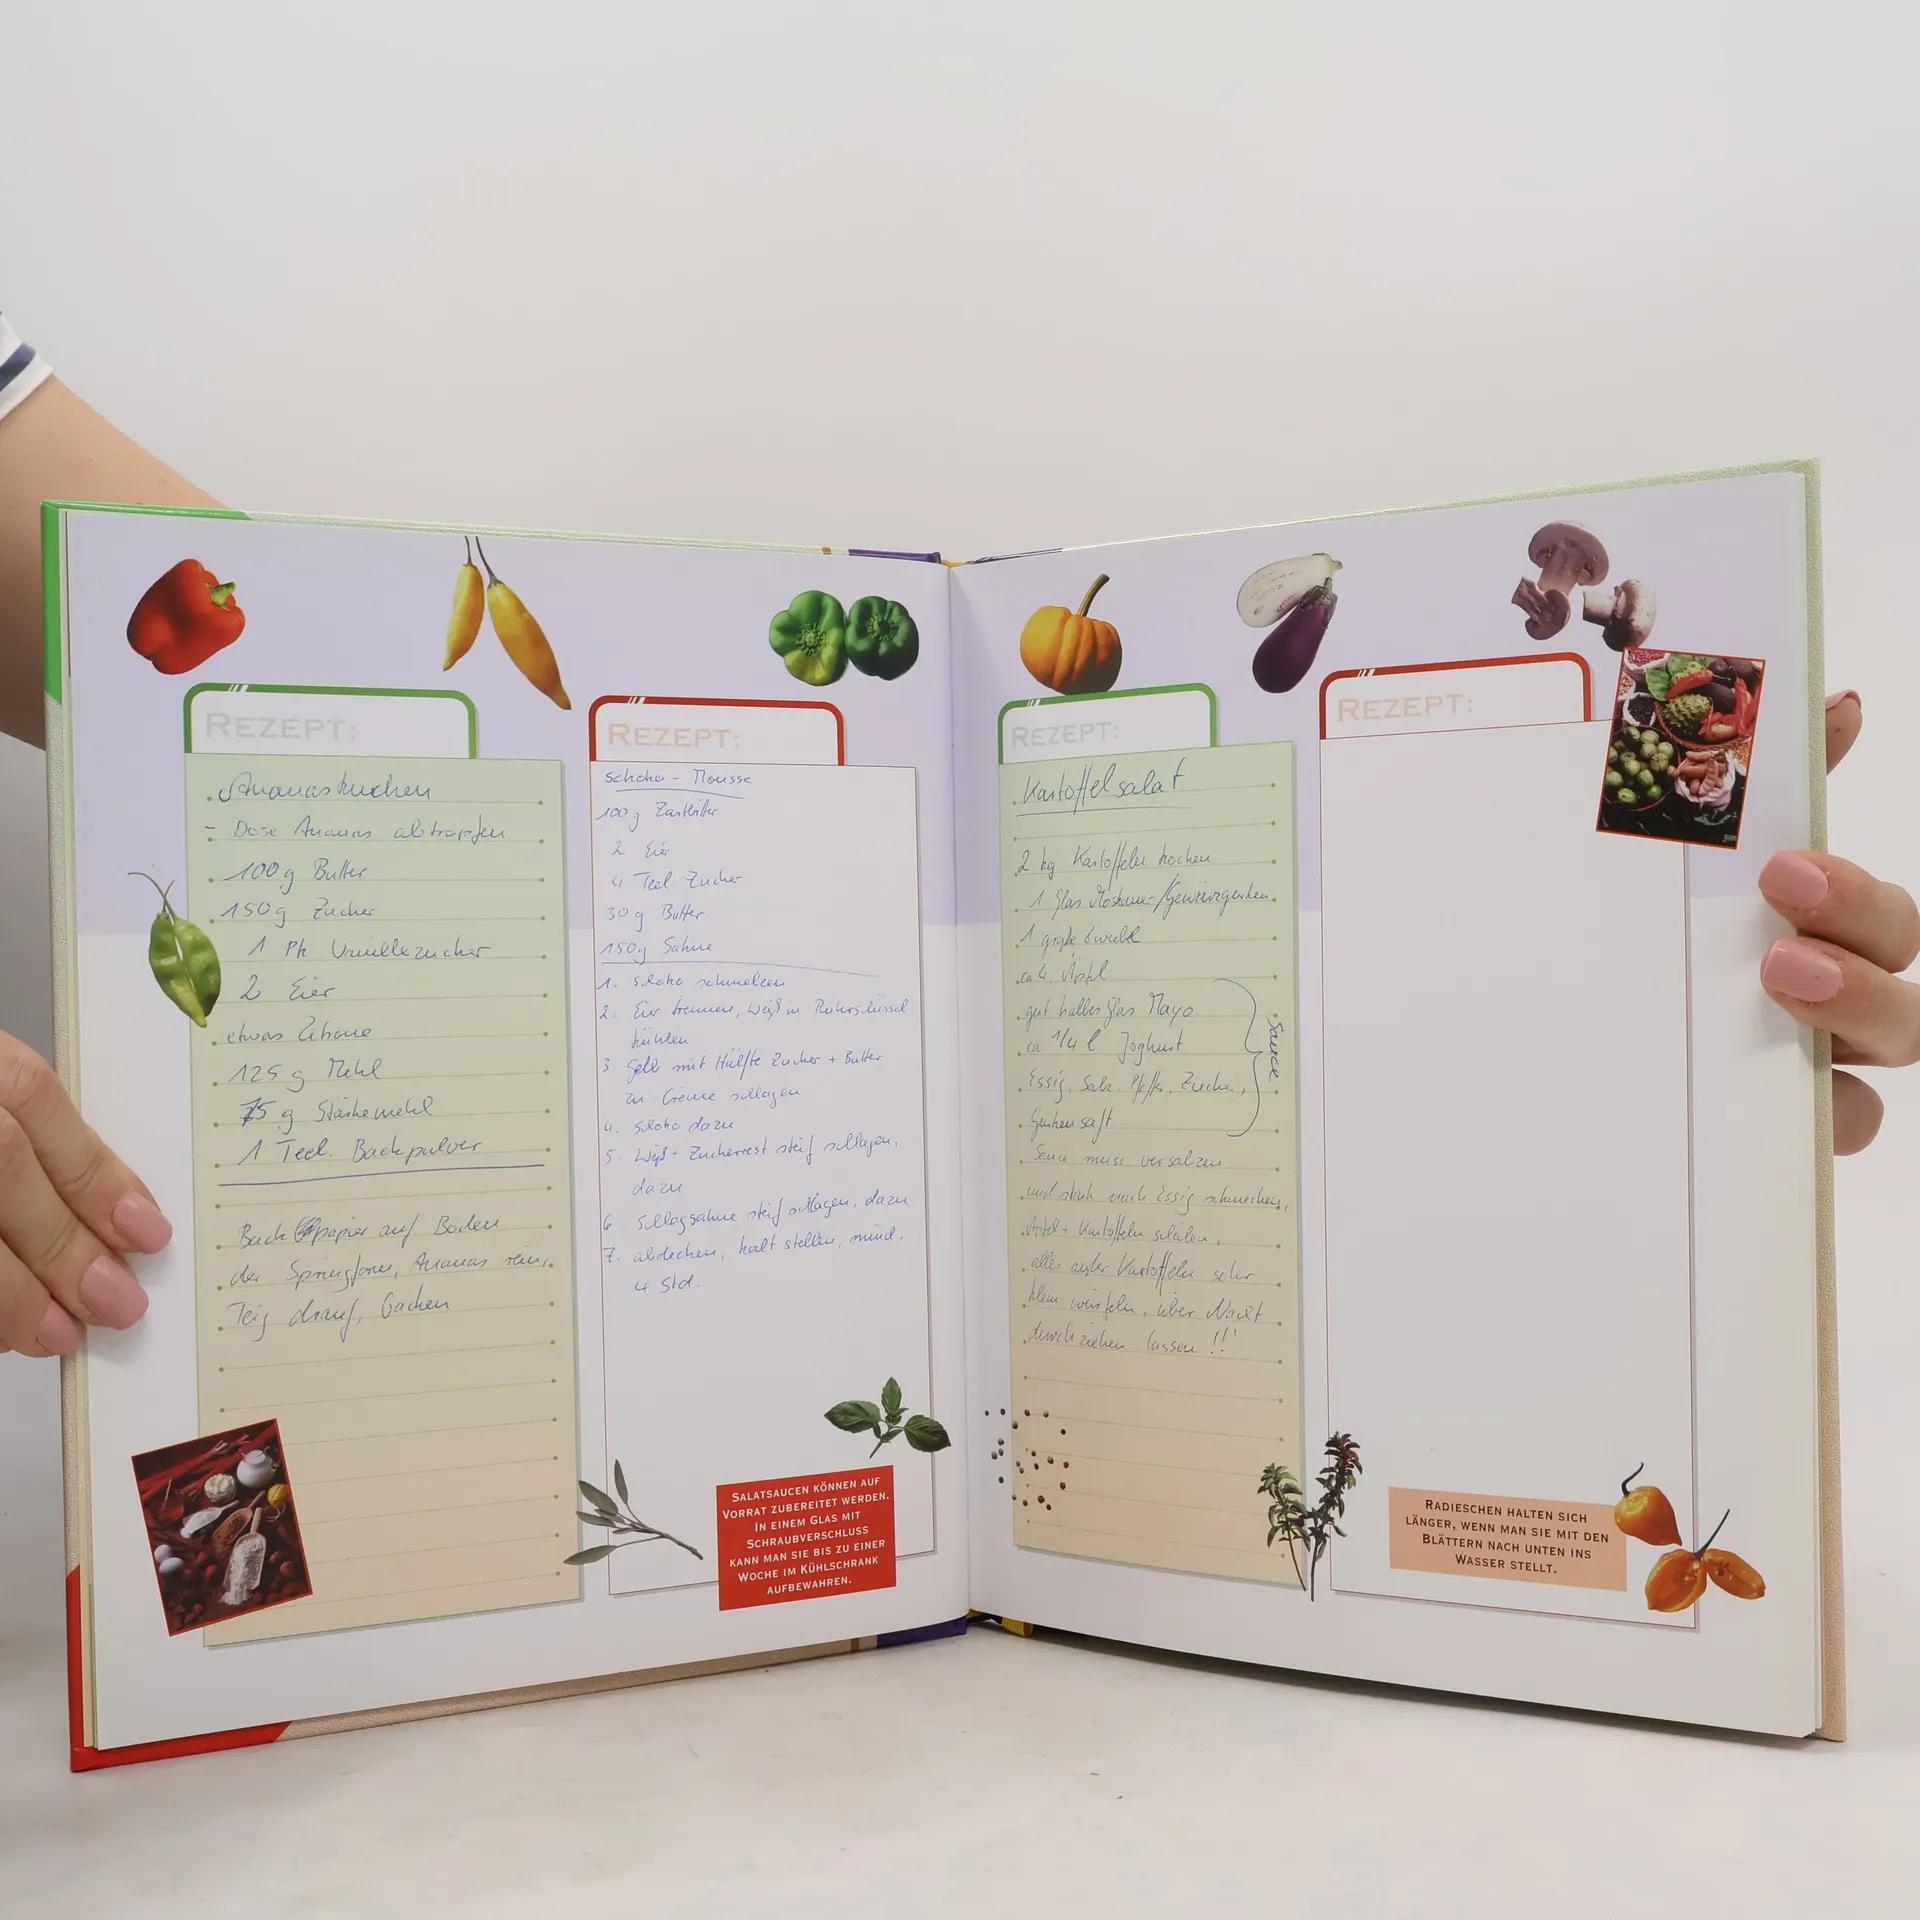 REZEPT:
Ananaskuchen
- Dose Ananas abtropfen
100g Butter
150g Zucker
1 Pk Vanillezucker
2 Eier
etwas Zitrone
125 g Mehl
75 g Stärkemehl
1 Teel. Backpulver
Backpapier auf Boden
der Springform, Ananas rein,
Teig drauf, backen
REZEPT:
Schoko - Mousse
100g Zartbitter
2 Eier
4 Teel. Zucker
30g Butter
150g Sahne
1. Schoko schmelzen
2. Eier trennen, Weiß in Rührschüssel
kühlen
3. Gelb mit Hälfte Zucker + Butter
zu Creme schlagen
4. Schoko dazu
5. Weiß + Zuckerrest steif schlagen,
dazu
6. Schlagsahne steif schlagen, dazu
7. abdecken, kalt stellen, mind.
4 Std.
SALATSAUCEN KÖNNEN AUF
VORRAT ZUBEREITET WERDEN.
IN EINEM GLAS MIT
SCHRAUBVERSCHLUSS
KANN MAN SIE BIS ZU EINER
WOCHE IM KÜHLSCHRANK
AUFBEWAHREN.
REZEPT:
Kartoffelsalat
2 kg Kartoffeln kochen
1 Glas /Gewürzgurken
1 große Zwiebel
ca 4. Äpfel
gut halbes Glas Mayo
ca 1/4 l Joghurt
Essig, Salz, Pfeffer, Zucker,
Gurkensaft
Sauce
Sauce muss versalzen
und stark nach Essig schmecken,
Äpfel + Kartoffeln schälen,
alles außer Kartoffeln sehr
klein würfeln, über Nacht
durchziehen lassen !!!
REZEPT:
RADIESCHEN HALTEN SICH
LÄNGER, WENN MAN SIE MIT DEN
BLÄTTERN NACH UNTEN INS
WASSER STELLT.